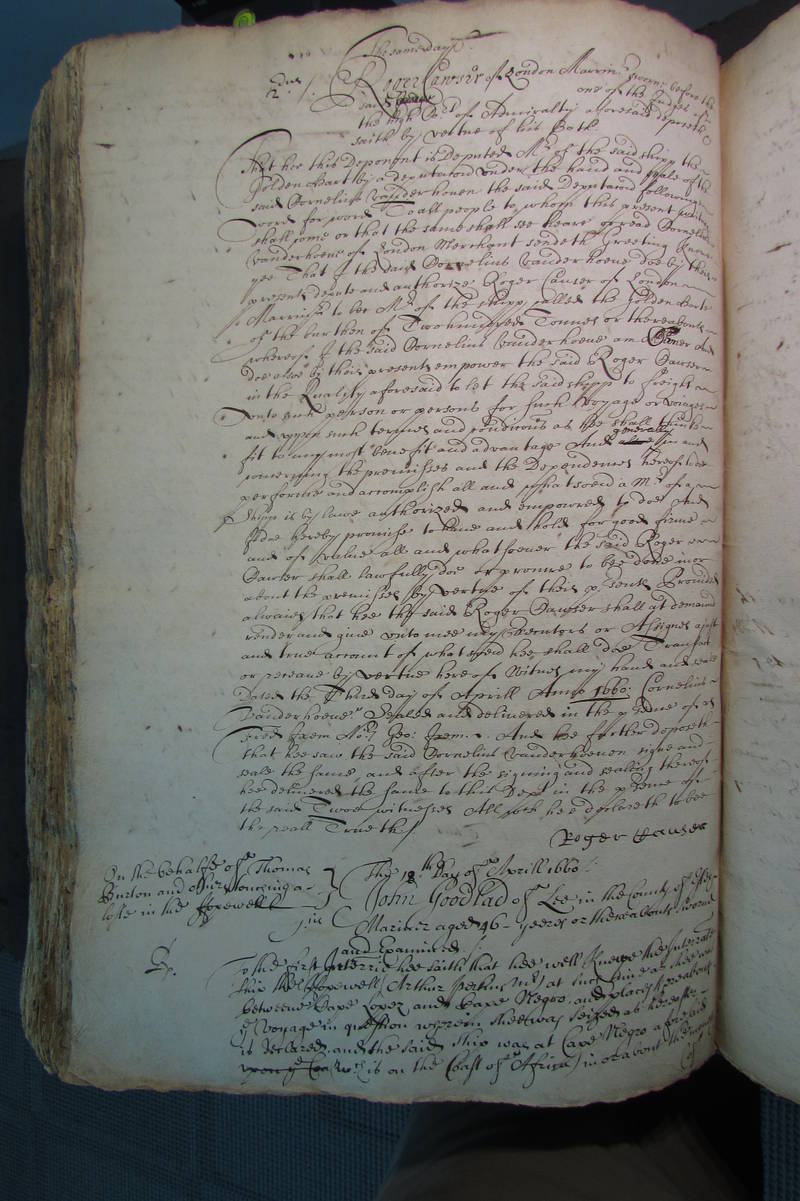 The same day
2dus Roger Cawser of London Marrinr sworne before the
said one of the Judges of
the High Cort of Admiralty aforesaid deposeth
saith by vertue of his Oath
That hee this Deponent is Deputed Mr of the said shipp the
Golden Hart by a deputacon under the hand and seale of the
said Cornelius Vander hoeuen the said Deputacon followinge
word for word To all people to whom this present writing
shall come or that the same shall see heare or read Cornelius
Vanderhoeue of London Merchant sendeth Greeting Know
yee That I the said Cornelius Vanderhoeue doe by theis
presents depute and authorize Roger Cawser of London
Marriner to bee Mr of the shipp called the Golden Harte
of the burthen of Two hundred Tonnes or thereabouts
whereof I the said Cornelius Vanderhoeue am Owner And
doe alsoe by theis presents empower the said Roger Cawser
in the Quality aforesaid to let the said shipp to freight
vnto such person or persons for such voyage or voiages
and vppon such termes and conditions as hee shall thinke
fit to my most benefit and advantage And generally in and
concerning the premisses and the Dependences hereof to doe
performe and accomplish all and whatsoeuer a Mr of a
Shipp is by lawe authorized and empowred to doe And
I doe hereby promise to haue and hold for good firme
and of value all and whatsoeuer the said Roger
Cawser shall lawfully doe or procure to bee done in or
about the premisses by vertue of theis psents Provided
alwaies that hee the said Roger Cawser shall at demand
render and giue vnto mee my Executors or Assignes a just
and true account of what hee shall doe Transact
or receaue by vertue hereof Witnes my hand and seale
Dated the Third day of Aprill Anno 1660: Cornelius
Vanderhoeue. Sealed and deliuered in the psence of
And hee further deposeth
that hee saw the said Cornelius Vanderhoeuen signe and
seale the same, and after the signing and sealing thereof
hee deliuered the same to this Dept in the psence of
the said Twoe witnesses All wch hee declareth to bee
the reall Trueth
Roger Cawser
On the behalfe of Thomas
Burton and others touching a
losse in the Hopewell
The 18.th Day of Aprill 1660
John Goodlad of Lee in the County of Essex
Mariner aged 46 yeeres or thereabouts, sworne
and Examined
To the first Interrie hee saith that hee well knewe the Interrate
ship the Hopewell (Arthur Perkins Mr) at such time as shee was
betweene Cape Lopez and Cape Negro, and places thereabouts
ye voyage in question wherein shee was seized as hereafter
is declared, and the said ship was at Cape Negro aforesaid
wch is on the Coast of Africa) in or about the
of